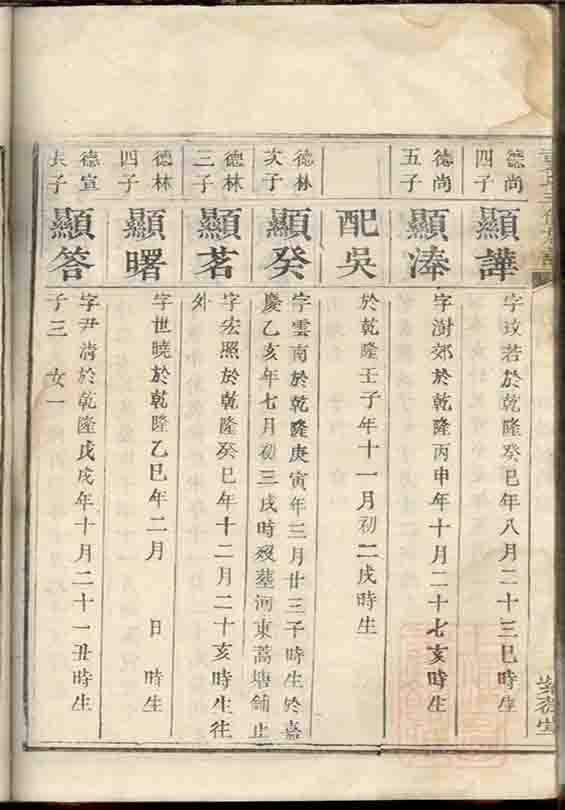 德尚
四子
顯譁
字玟若於乾隆癸巳年八月二十三巳時生
德尚
五子
顯溱
字澍郊於乾隆丙申年十月二十七亥時生
配吳
於乾隆壬子年十一月初二戌時生
德林
次子
顯癸
字雲南於乾隆庚寅年三月廿三子時生於嘉
慶乙亥年七月初三戌時歿塟河東蒿塘鋪止
德林
三子
顯茗
字宏照於乾隆癸巳年十二月二十亥時生往
外
德林
四子
顯曙
字世曉於乾隆乙巳年二月 日 時生
德宣
長子
顯答
字尹清於乾隆戊戌年十月二十一丑時生
子三 女一